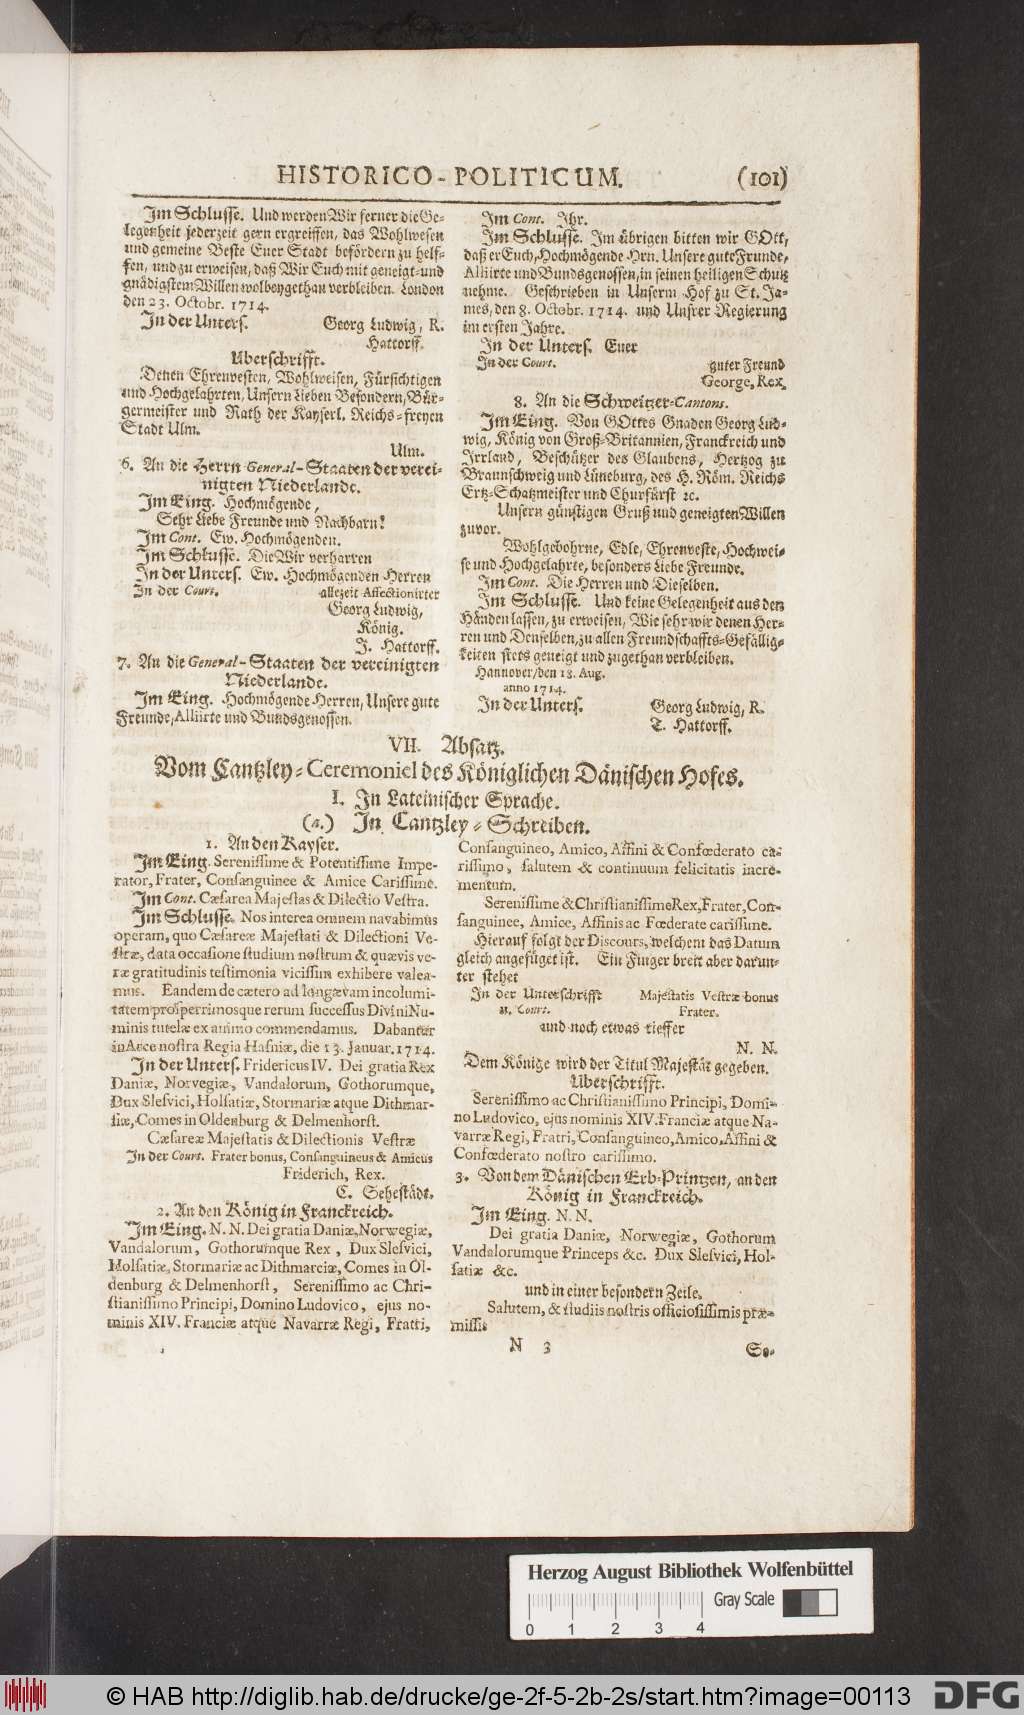 HISTORICO-POLITICUM. (101)
Im Schlusse. Und werden Wir ferner die Ge-
legenheit jederzeit gern ergreiffen, das Wohlwesen
und gemeine Beste Euer Stadt befördern zu helf-
fen, und zu erweisen, daß Wir Euch mit geneigt-und
gnädigstem Willen wolbeygethan verbleiben. London
den 23. Octobr. 1714.
In der Unters. Georg Ludwig, R.
Hattorff.
Uberschrifft.
Denen Ehrenvesten, Wohlweisen, Fürsichtigen
und Hochgelahrten, Unsern Lieben Besondern, Bür-
germeister und Rath der Kayserl. Reichs-freyen
Stadt Ulm.
Ulm.
6. An die Herrn General-Staaten der verei-
nigten Niederlande.
Im Eing. Hochmögende,
Sehr Liebe Freunde und Nachbarn!
Im Cont. Ew. Hochmögenden.
Im Schlusse. Die Wir verharren
In der Unters. Ew. Hochmögenden Herren
In der Court. allezeit Affectionirter
Georg Ludwig,
König.
J. Hattorff.
7. An die General-Staaten der vereinigten
Niederlande.
Im Eing. Hochmögende Herren, Unsere gute
Freunde, Alliirte und Bundsgenossen.
Im Cont. Ihr.
Im Schlusse. Im übrigen bitten wir GOtt,
daß er Euch, Hochmögende Hrn. Unsere gute Frunde,
Alliirte und Bundsgenossen, in seinen heiligen Schutz
nehme. Geschrieben in Unserm Hof zu St. Ja-
mes, den 8. Octobr. 1714. und Unsrer Regierung
im ersten Jahre.
In der Unters. Euer
In der Court. guter Freund
George, Rex.
8. An die Schweitzer-Cantons.
Im Eing. Von GOttes Gnaden Georg Lud-
wig, König von Groß-Britannien, Franckreich und
Irrland, Beschützer des Glaubens, Hertzog zu
Braunschweig und Lüneburg, des H. Röm. Reichs
Ertz-Schatzmeister und Churfürst ꝛc.
Unsern günstigen Gruß und geneigten Willen
zuvor.
Wohlgebohrne, Edle, Ehrenveste, Hochwei-
se und Hochgelahrte, besonders Liebe Freunde.
Im Cont. Die Herren und Dieselben.
Im Schlusse. Und keine Gelegenheit aus den
Händen lassen, zu erweisen, Wie sehr wir denen Her-
ren und Denselben, zu allen Freundschaffts-Gefällig-
keiten stets geneigt und zugethan verbleiben.
Hannover/den 18. Aug.
anno 1714.
In der Unters. Georg Ludwig, R.
T. Hattorff.
VII. Absatz.
Vom Cantzley-Ceremoniel des Königlichen Dänischen Hofes.
I. In Lateinischer Sprache.
(a.) In Cantzley-Schreiben.
1. An den Kayser.
Im Eing. Serenissime & Potentissime Impe-
rator, Frater, Consanguinee & Amice Carissime.
Im Cont. Cæsarea Majestas & Dilectio Vestra.
Im Schlusse. Nos interea omnem navabimus
operam, quo Cæsareæ Majestati & Dilectioni Ve-
stræ, data occasione studium nostrum & quævis ve-
ræ gratitudinis testimonia vicissim exhibere valea-
mus. Eandem de cætero ad longævam incolumi-
tatem prosperrimosque rerum successus Divini Nu-
minis tutelæ ex animo commendamus. Dabantur
in Arce nostra Regia Hafniæ, die 13. Januar. 1714.
In der Unters. Fridericus IV. Dei gratia Rex
Daniæ, Norvegiæ, Vandalorum, Gothorumque,
Dux Slesvici, Holsatiæ, Stormariæ atque Dithmar-
siæ, Comes in Oldenburg & Delmenhorst.
Cæsareæ Majestatis & Dilectionis Vestræ
In der Court. Frater bonus, Consanguineus & Amicus
Friderich, Rex.
C. Sehestädt.
2. An den König in Franckreich.
Im Eing. N. N. Dei gratia Daniæ, Norwegiæ,
Vandalorum, Gothorumque Rex, Dux Slesvici,
Holsatiæ, Stormariæ ac Dithmarciæ, Comes in Ol-
denburg & Delmenhorst, Serenissimo ac Chri-
stianissimo Principi, Domino Ludovico, ejus no-
minis XIV. Franciæ atque Navarræ Regi, Fratri,
Consanguineo, Amico, Affini & Confœderato ca-
rissimo, salutem & continuum felicitatis incre-
mentum.
Serenissime & Christianissime Rex, Frater, Con-
sanguinee, Amice, Affinis ac Fœderate carissime.
Hierauf folgt der Discours, welchem das Datum
gleich angefüget ist. Ein Finger breit aber darun-
ter stehet
In der Unterschrifft Majestatis Vestræ bonus
in Court. Frater.
und noch etwas tieffer
N. N.
Dem Könige wird der Titul Majestät gegeben.
Uberschrifft.
Serenissimo ac Christianissimo Principi, Domi-
no Ludovico, ejus nominis XIV. Franciæ atque Na-
varræ Regi, Fratri, Consanguineo, Amico, Affini &
Confœderato nostro carissimo.
3. Von dem Dänischen Erb-Printzen, an den
König in Franckreich.
Im Eing. N. N.
Dei gratia Daniæ, Norwegiæ, Gothorum
Vandalorumque Princeps &c. Dux Slesvici, Hol-
satiæ &c.
und in einer besondern Zeile.
Salutem, & studiis nostris officiosissimis præ-
missis
N 3 Se-
Herzog August Bibliothek Wolfenbüttel
Gray Scale
0 1 2 3 4
© HAB http://diglib.hab.de/drucke/ge-2f-5-2b-2s/start.htm?image=00113 DFG